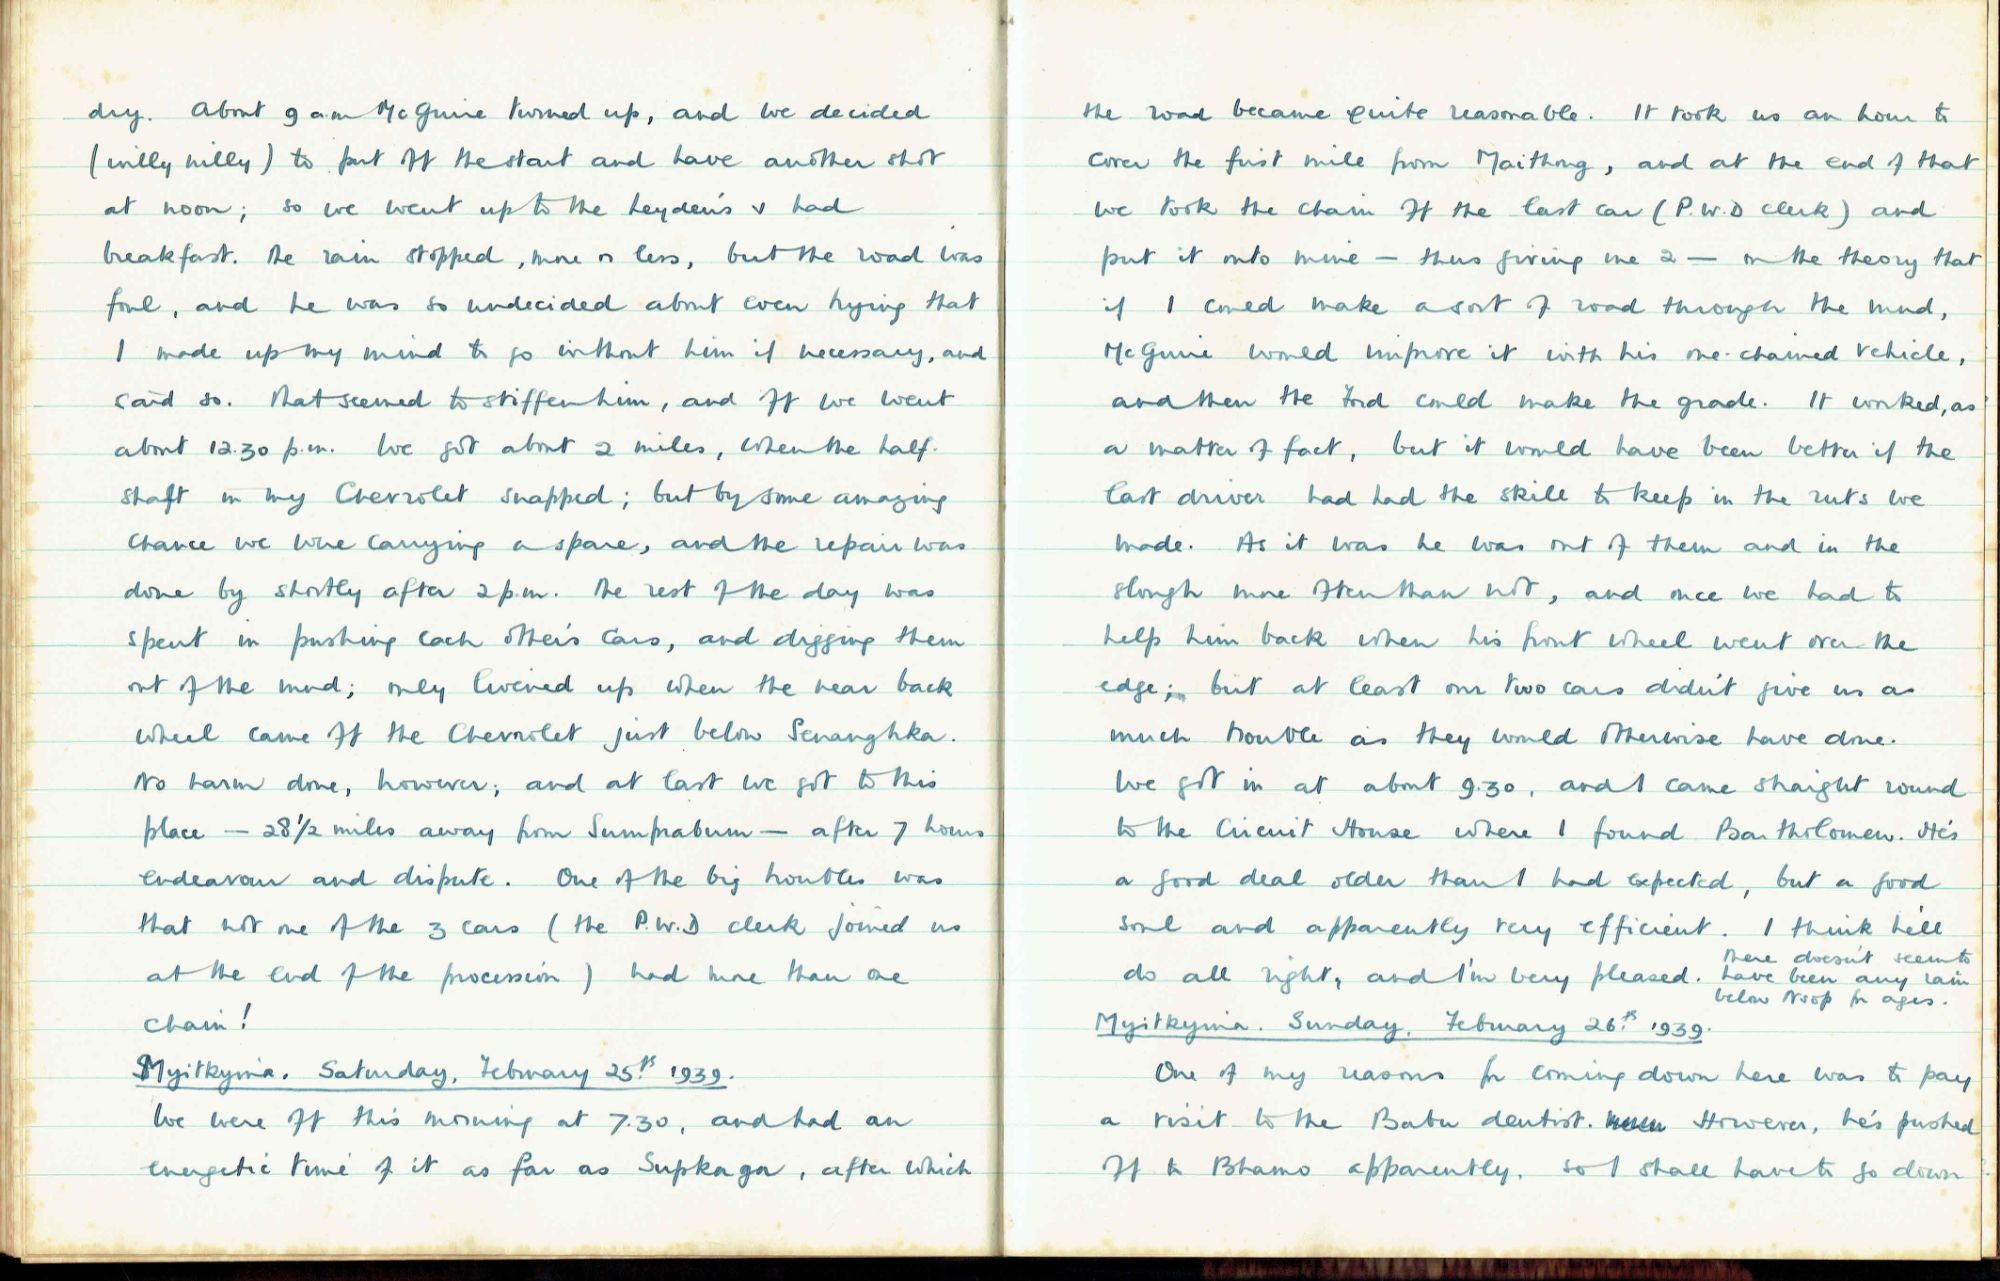 dry. About 9 am McGuire turned up, and we decided
(willy nilly) to put off the start and have another shot
at noon; so we went up to the Leyden's & had
breakfast. The rain stopped, more or less, but the road was
foul, and he was so undecided about even trying that
I made up my mind to go without him if necessary, and
said so. That seemed to stiffen him, and off we went
about 12.30 p.m. We got about 2 miles, when the half-
shaft in my Chevrolet snapped; but by some amazing
chance we were carrying a spare, and the repair was
done by shortly after 2 p.m. The rest of the day was
spent in pushing each other's cars, and digging them
out of the mud; only livened up when the near back
wheel came off the Chevrolet just below Senanghka.
No harm done, however; and at last we got to this
place — 28 1/2 miles away from Sumprabum — after 7 hours
endeavour and dispute. One of the big troubles was
that not one of the 3 cars (the P.W.D clerk joined us
at the end of the procession) had more than one
chain!
Myitkyina. Saturday, February 25th 1939.
We were off this morning at 7.30, and had an
energetic time of it as far as Supkaga, after which
the road became quite reasonable. It took us an hour to
cover the first mile from Maithong, and at the end of that
we took the chain off the last car (P.W.D clerk) and
put it onto mine — thus giving me 2 — on the theory that
if I could make a sort of road through the mud,
McGuire would improve it with his one-chained vehicle,
and then the Ford could make the grade. It worked, as
a matter of fact, but it would have been better if the
last driver had had the skill to keep in the ruts we
made. As it was he was out of them and in the
slough more often than not, and once we had to
help him back when his front wheel went over the
edge; but at least our two cars didn't give us as
much trouble as they would otherwise have done.
We got in at about 9.30, and I came straight round
to the Circuit House where I found Bartholomew. He's
a good deal older than I had expected, but a good
soul and apparently very efficient. I think he'll
do all right, and I'm very pleased. There doesn't seem to
have been any rain
below Noop for ages.
Myitkyina. Sunday, February 26th 1939.
One of my reasons for coming down here was to pay
a visit to the Babu dentist. However, he's pushed
off to Bhamo apparently. So I shall have to go down